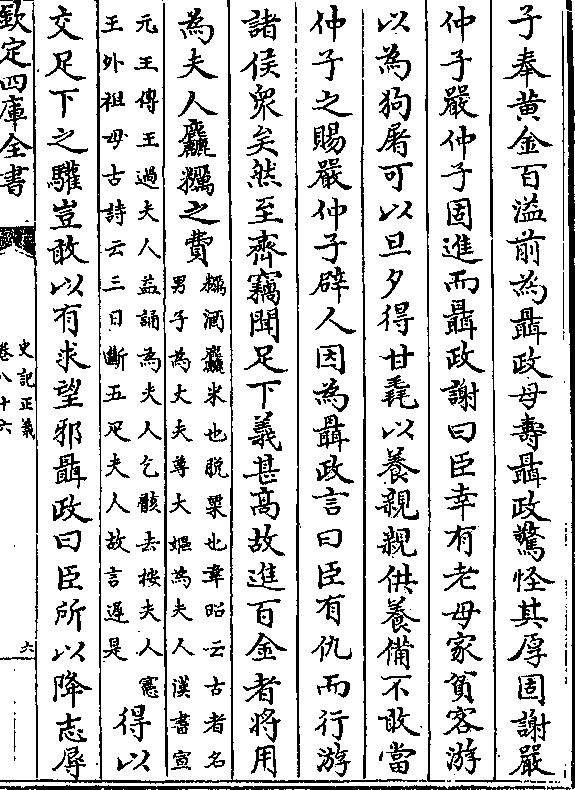 子奉黄金百溢前為聶政母壽聶政驚怪其厚固謝嚴
仲子嚴仲子固進而聶政謝曰臣幸有老母家貧客游
以為狗屠可以旦夕得甘毳以養親親供養備不敢當
仲子之賜嚴仲子辟人因為聶政言曰臣有仇而行游
諸侯衆矣然至齊竊聞足下義甚髙故進百金者將用
為夫人麤糲之費
糲猶麤米也脱粟也韋昭云古者名
男子為大夫尊大嫗為夫人漢書宣
元王傳王過夫人益誦為夫人乞骸去按夫人憲
王外祖母古詩云三日斷五疋夫人故言遲是
得以
交足下之驩豈敢以有求望邪聶政曰臣所以降志辱
欽定四庫全書
史記正義
卷八十六
六